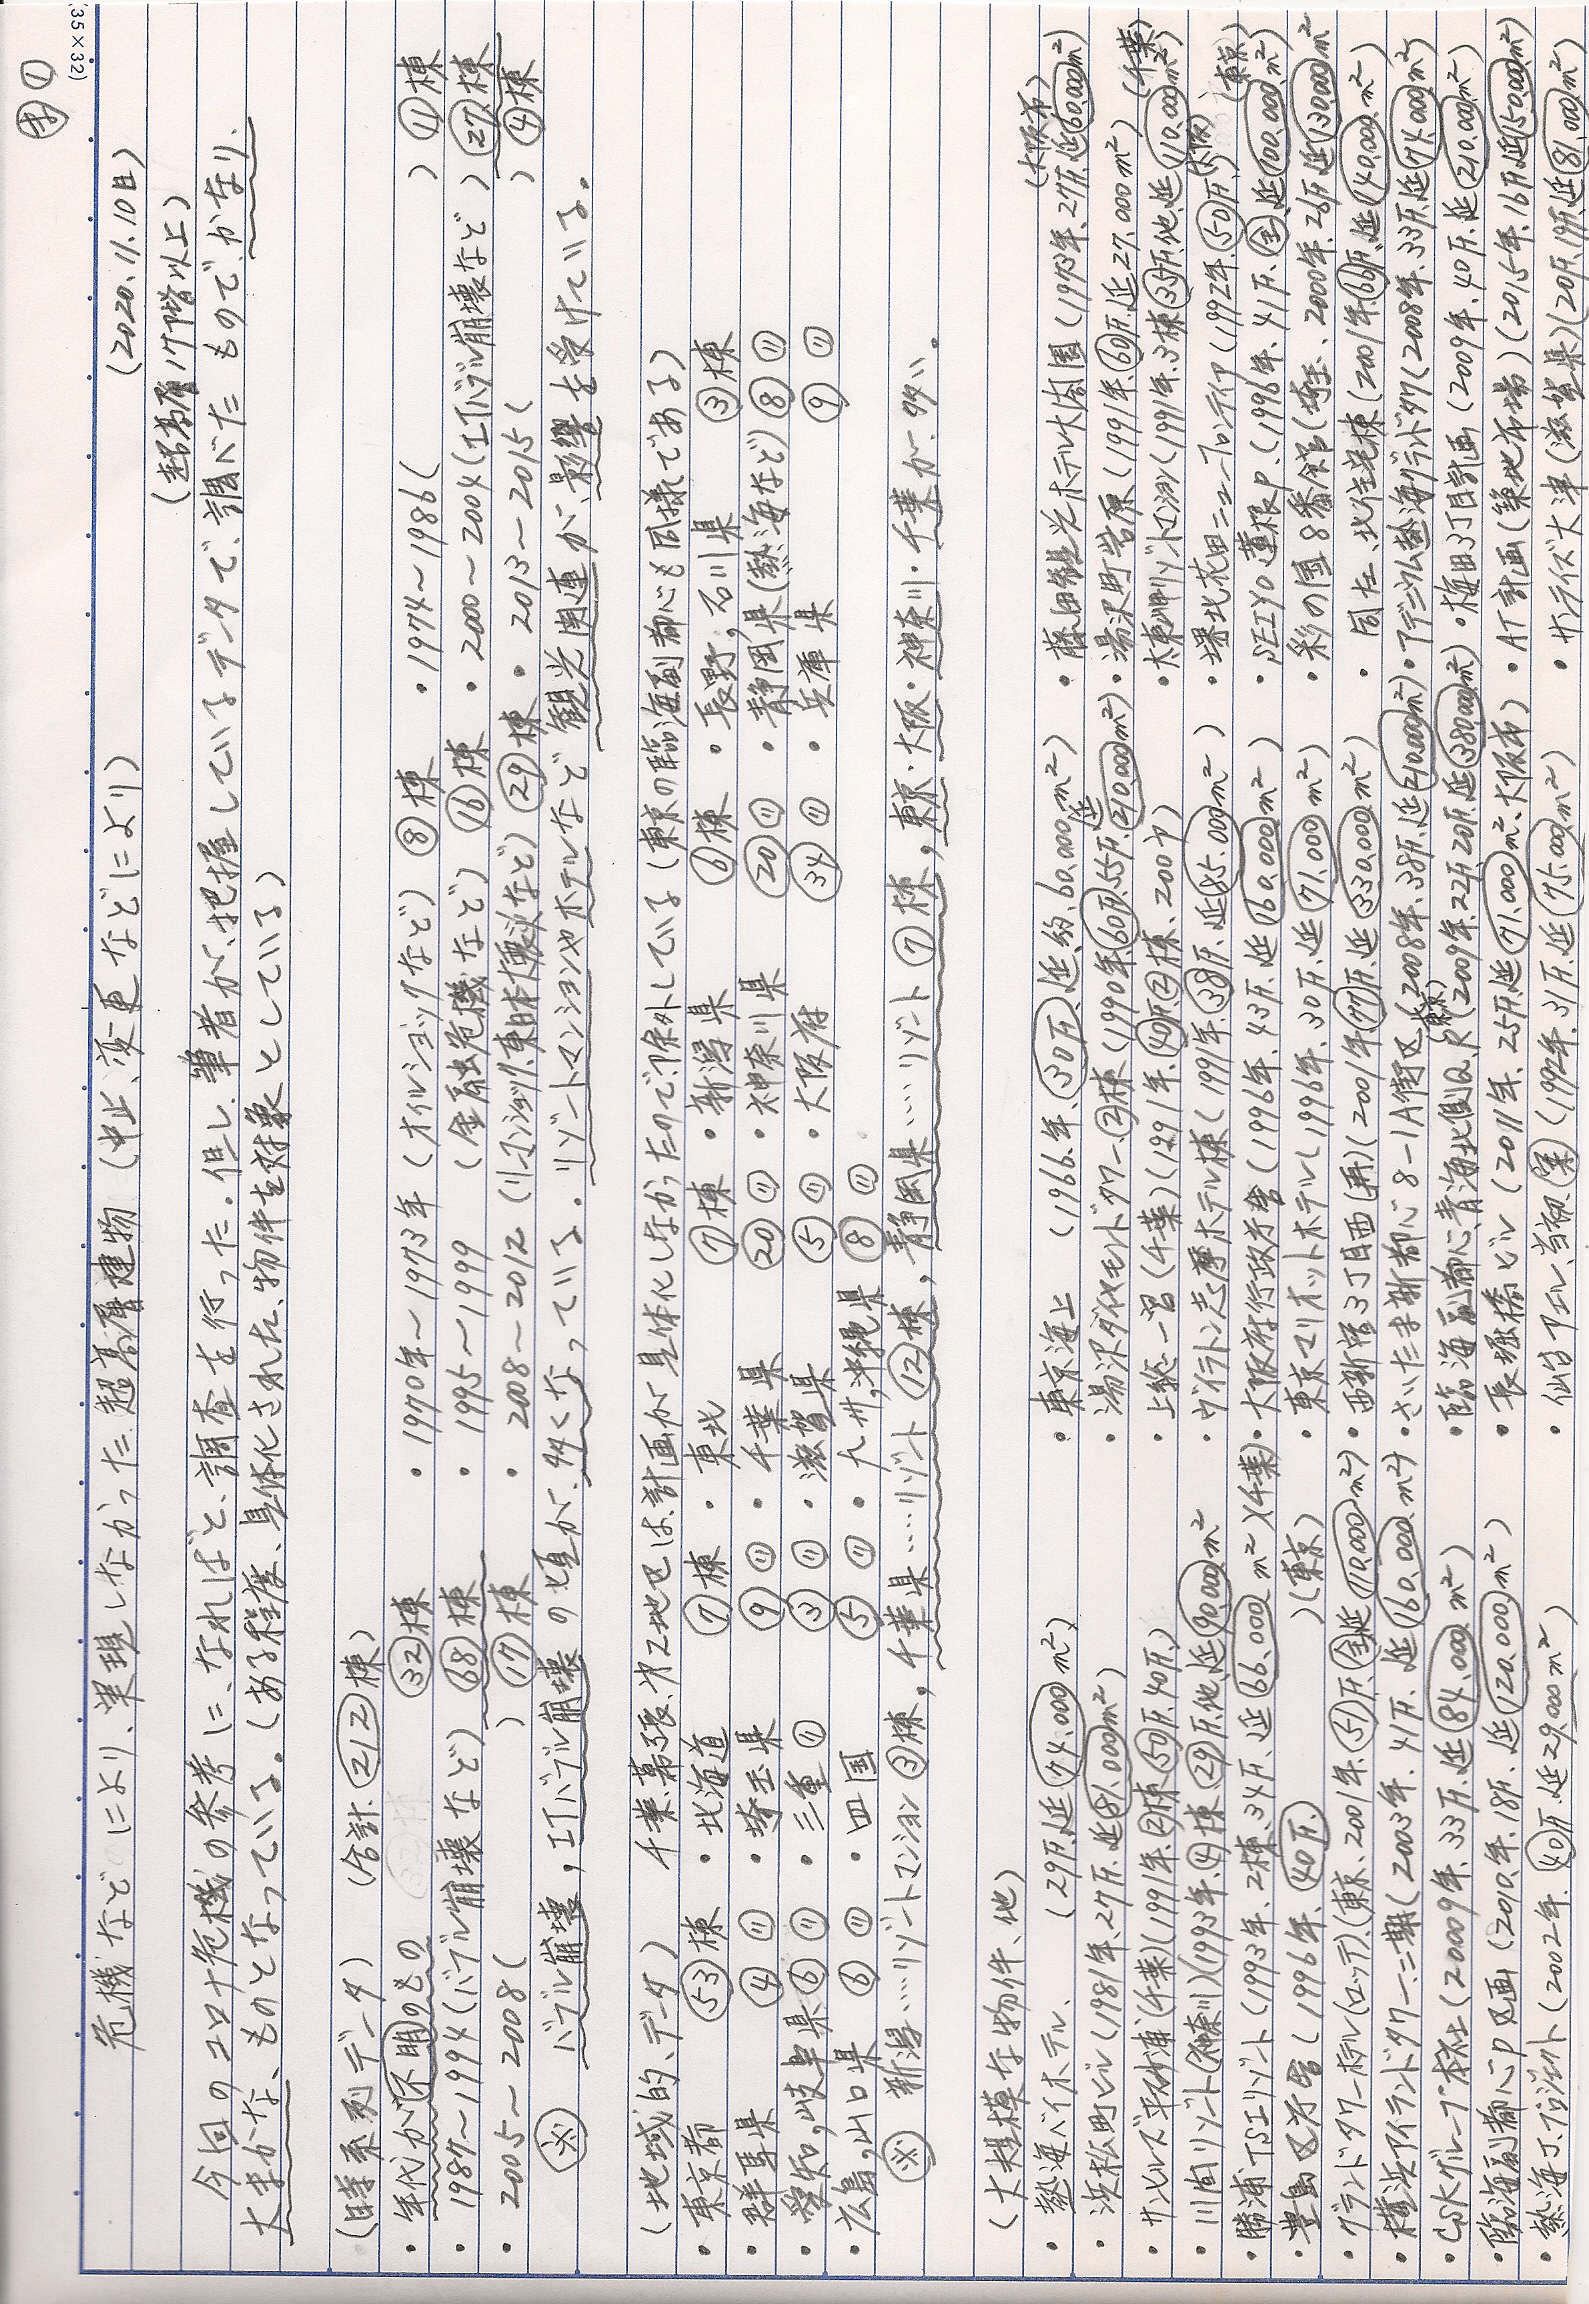 (35×32)
才①
危機などのにより、実現しなかった超高層建物(中止、変更などにより) (2020.11.10日)
(超高層17階以上)
今回のコロナ危機の参考に、なればと、調査を行った。但し、筆者が、把握しているデータで、調べたもので、かなり、
大まかな、ものとなっている。(ある程度、具体化された、物件を対象としている)
(時系列データ) (合計、212棟)
・年代が不明のもの 32棟 ・1970年~1973年(オイルショックなど) 8棟 ・1974~1986( ) 11棟
・1987~1994(バブル崩壊など) 68棟 ・1995~1999 (金融危機など) 16棟 ・2000~2004(ITバブル崩壊など) 27棟
・2005~2008( ) 17棟 ・2008~2012(リーマンショック、東日本大震災など) 29棟 ・2013~2015( ) 4棟
※ バブル崩壊、ITバブル崩壊の頃が、多くなっている。リゾートマンションやホテルなど観光関連が、影響を受けている。
(地域的、データ) 千葉、幕張、第2地区は、計画が具体化しなかったので、除外している(東京の臨海副都心も同様である)
・東京都 53棟 ・北海道 7棟 ・東北 7棟 ・新潟県 6棟 ・長野、石川県 3棟
・群馬県 4〃 ・埼玉県 9〃 ・千葉県 20〃 ・神奈川県 20〃 ・静岡県(熱海など) 8〃
・愛知、岐阜県 6〃 ・三重〃 3〃 ・滋賀県 5〃 ・大阪府 34〃 ・兵庫県 9〃
・広島、山口県 6〃 ・四国 5〃 ・九州、沖縄県 8〃
※ 新潟……リゾートマンション3棟、千葉県……リゾート12棟、静岡県……リゾート7棟、東京・大阪・神奈川・千葉が、多い。
(大規模な物件、他)
・熱海ベイホテル、 (29F、延74.000m²) ・東京海上 (1966年、30F、延、約、60.000m²) ・藤田観光ホテル大閤園(1973年、27F、延60.000m²) (大阪市)
・浜松町ビル(1981年、27F、延81.000m²) 湯沢ダイヤモンドタワー、2棟(1990年、60F、55F、延210.000m²) ・湯沢町岩原(1991年、60F、延27.000m²)
・サンヒルズ平砂浦(千葉)(1991年、2棟、50F、40F、) ・上総一宮(千葉)(1991年、40F、2棟、200戸) ・大東岬リゾートマンション(1991年、3棟、35F、他、延110.000m²) (千葉)
・川間リゾート(神奈川)(1993年、4棟、29F、他、延90.000m² ・ヴィラトン志摩ホテル棟(1991年、38F、延85.000m²) ・堺北花田ニューフロンティア(1992年、50F、) (大阪)
・勝浦TSエリゾート(1993年、2棟、34F、延66.000m²)(千葉) ・大阪府行政庁舎(1996年、43F、延160.000m²) ・SEIYO蓮根P.(1996年、41F、全延100.000m²) (東京)
・豊島区庁舎(1996年、40F、 )(東京) ・東京マリオットホテル(1996年、30F、延71.000m²) ・彩の国8番館(埼玉、2000年、26F、延130.000m²
・グランドタワーホテル(ロッテ)、(東京、2001年、51F、全延110.000m²) ・西新宿3丁目西(再)(2001年、77F、延330.000m² ・同左、北住宅棟(2001年、66F、延140.000m²)
・横浜アイランドタワー、二期(2003年、41F、延160.000m²) ・さいたま新都心8-1A街区(2008年、38F、延210.000m²) ・アデニウム熱海グランドタワ(2008年、33F、延74.000m²)
・CSKグループ本社(20009年、33F、延84.000m²) ・臨海副都心、青海北側Q、R(2009年、22F、20F、延380.000m²) (東京) ・梅田3丁目計画(2009年、40F、延210.000m²)
・臨海副都心P区画(2010年、18F、延120.000m²) ・長堀橋ビル(2011年、25F、延71.000m²、大阪市) ・AT計画(築地市場)(2015年、16F、延150.000m²)
・熱海J、プロジェクト(2002年、40F、延29.000m² ・仙台アエル、当初、案(1992年、31F、延75.000m²) ・サンライズ大津(滋賀県)(20F、19F、延81.000m²)